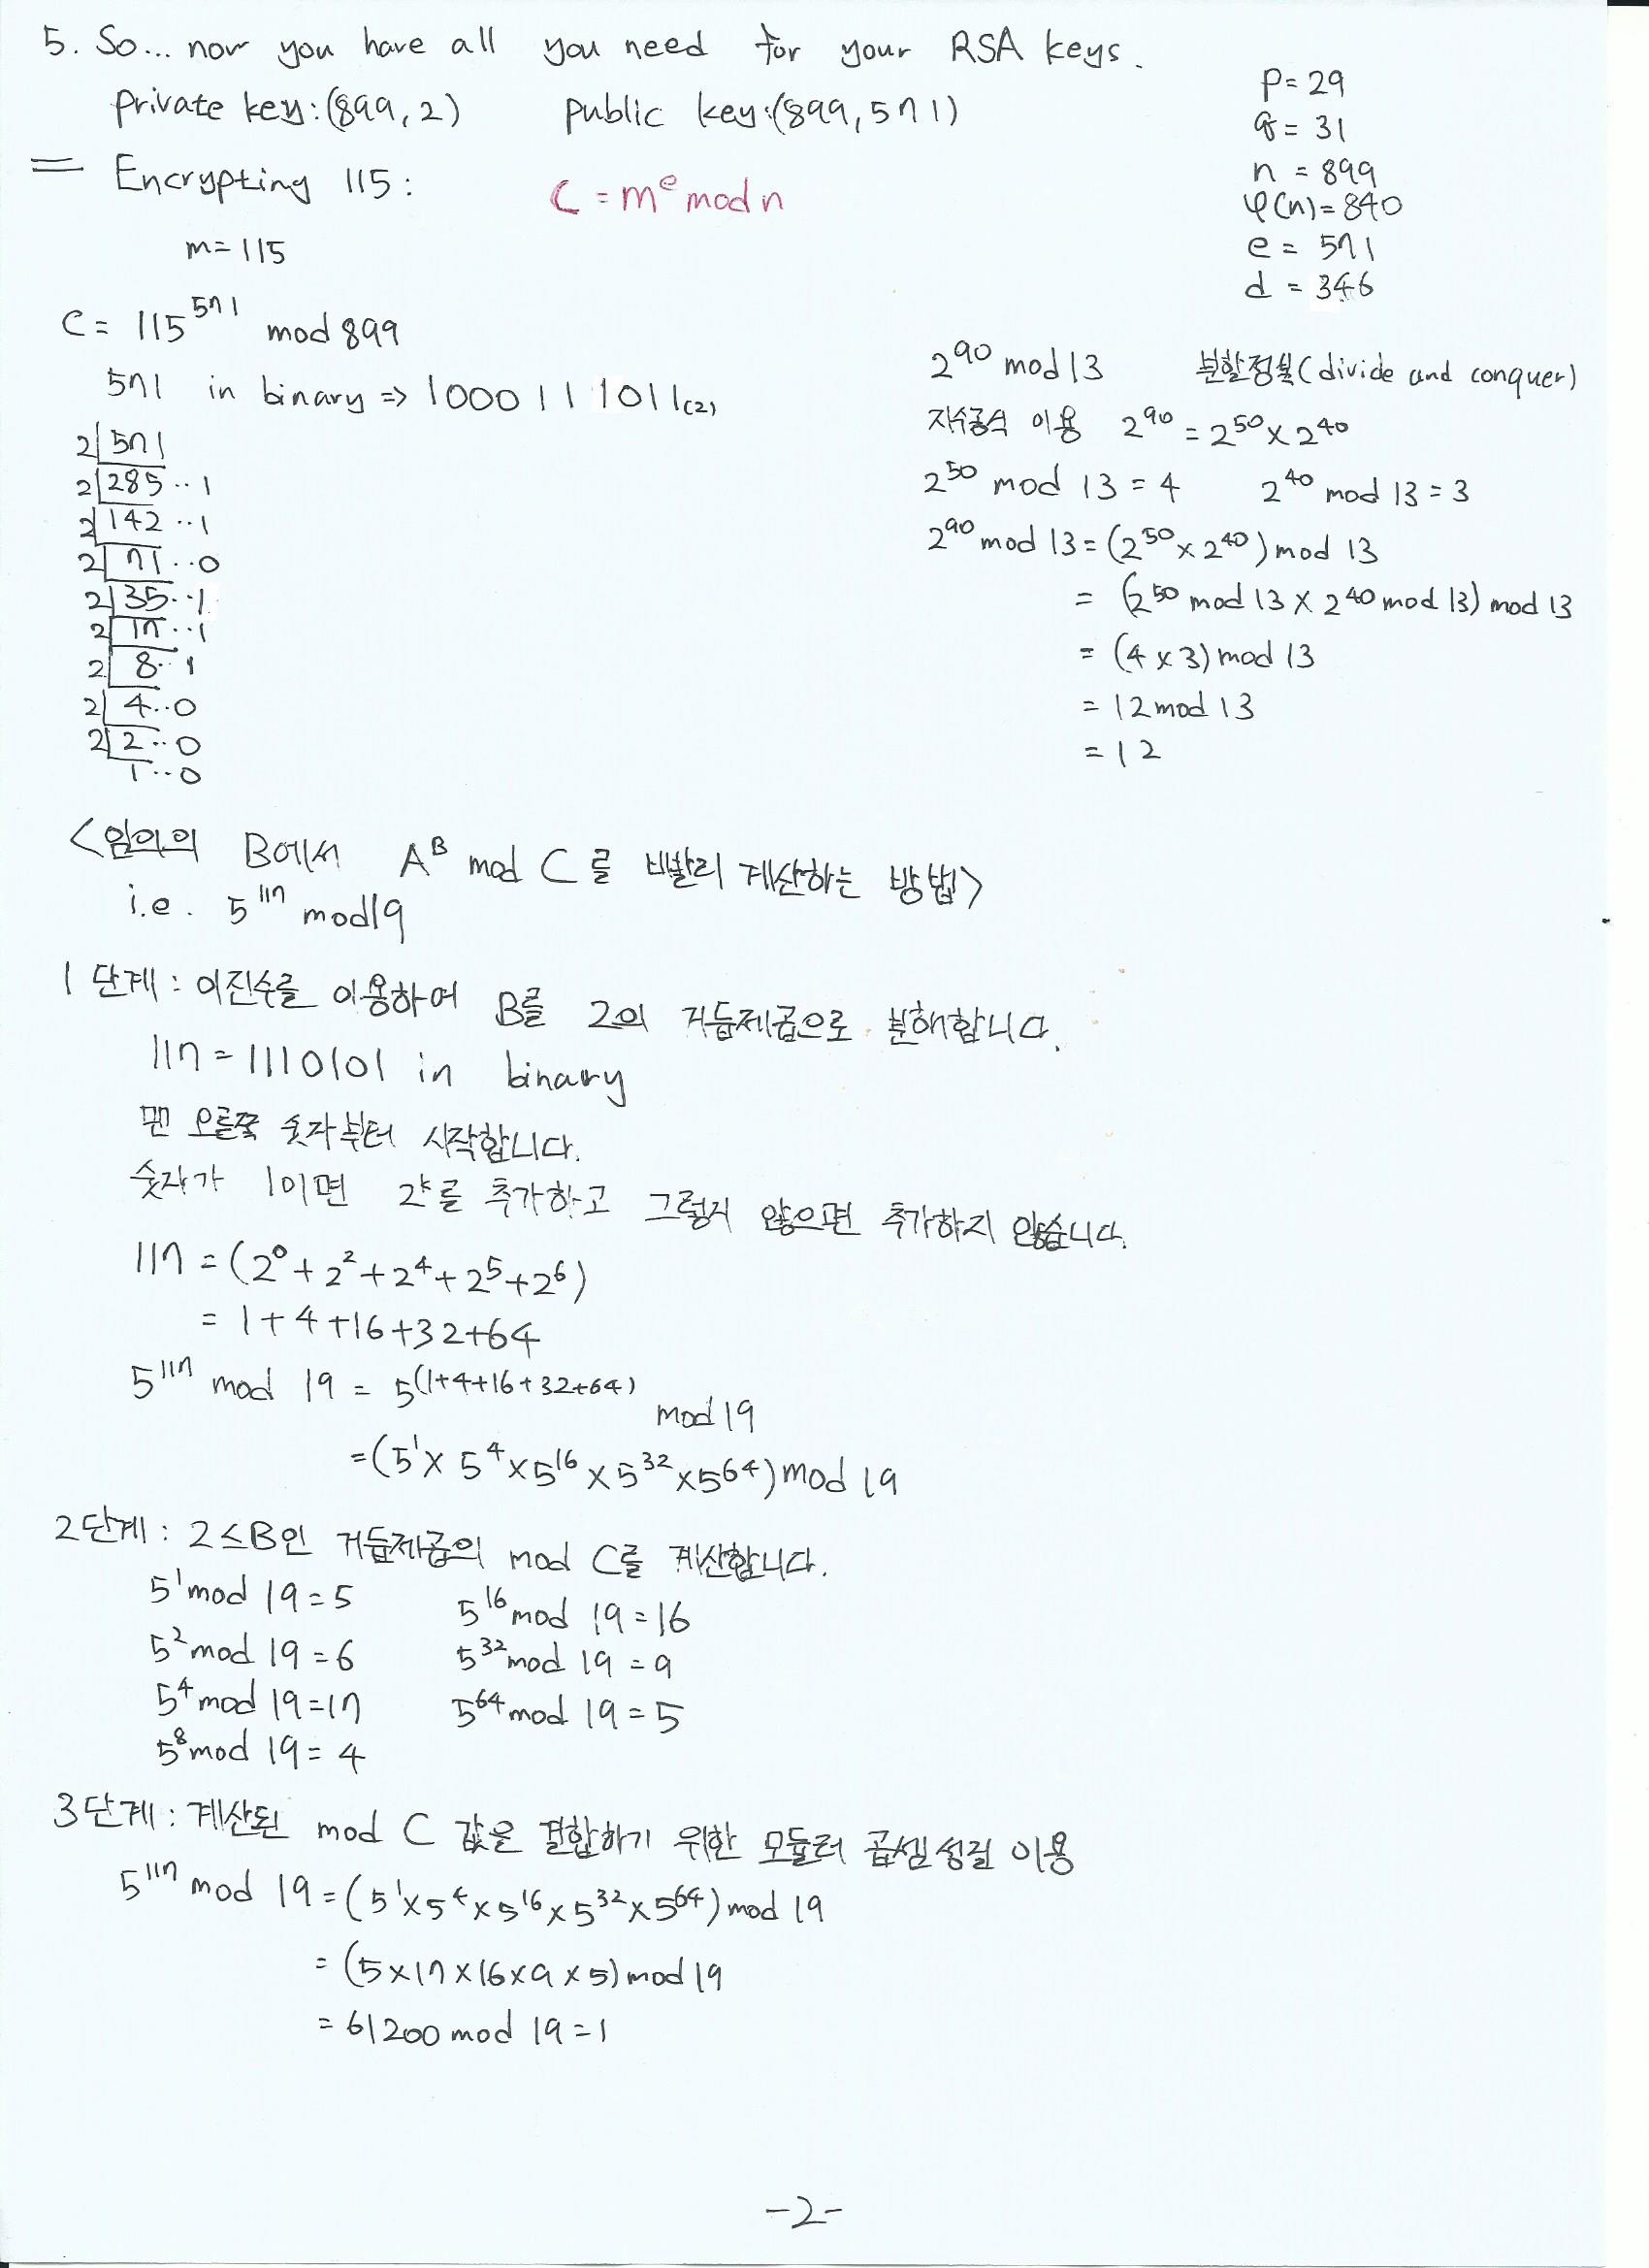 5. So... now you have all you need for your RSA keys.
private key:(899, 2) public key:(899, 571)
p=29
q=31
n=899
φ(n)=840
e=571
d=346
= Encrypting 115: C=mᵉ mod n
m=115
C=115⁵⁷¹ mod 899
571 in binary => 1000111011₍₂₎
2|571
2|285··1
2|142··1
2|71··0
2|35··1
2|17··1
2|8··1
2|4··0
2|2··0
1··0
2⁹⁰ mod 13 분할정복(divide and conquer)
지수공식 이용 2⁹⁰=2⁵⁰×2⁴⁰
2⁵⁰ mod 13=4 2⁴⁰ mod 13=3
2⁹⁰ mod 13=(2⁵⁰×2⁴⁰) mod 13
=(2⁵⁰ mod 13×2⁴⁰ mod 13) mod 13
=(4×3) mod 13
=12 mod 13
=12
<임의의 B에서 Aᴮ mod C를 빠르게 계산하는 방법>
i.e. 5¹¹⁷ mod 19
1단계: 이진수를 이용하여 B를 2의 거듭제곱으로 분해합니다.
117=1110101 in binary
맨 오른쪽 숫자부터 시작합니다.
숫자가 1이면 2ᵏ를 추가하고 그렇지 않으면 추가하지 않습니다.
117=(2⁰+2²+2⁴+2⁵+2⁶)
=1+4+16+32+64
5¹¹⁷ mod 19=5⁽¹⁺⁴⁺¹⁶⁺³²⁺⁶⁴⁾ mod 19
=(5¹×5⁴×5¹⁶×5³²×5⁶⁴) mod 19
2단계: 2≤B인 거듭제곱의 mod C를 계산합니다.
5¹ mod 19=5 5¹⁶ mod 19=16
5² mod 19=6 5³² mod 19=9
5⁴ mod 19=17 5⁶⁴ mod 19=5
5⁸ mod 19=4
3단계: 계산된 mod C 값을 결합하기 위한 모듈러 곱셈 성질 이용
5¹¹⁷ mod 19=(5¹×5⁴×5¹⁶×5³²×5⁶⁴) mod 19
=(5×17×16×9×5) mod 19
=61200 mod 19=1
-2-